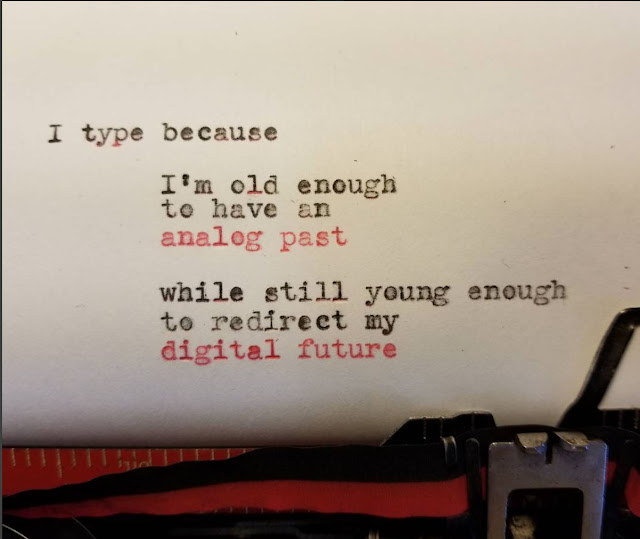 I type because
I'm old enough
to have an
analog past
while still young enough
to redirect my
digital future